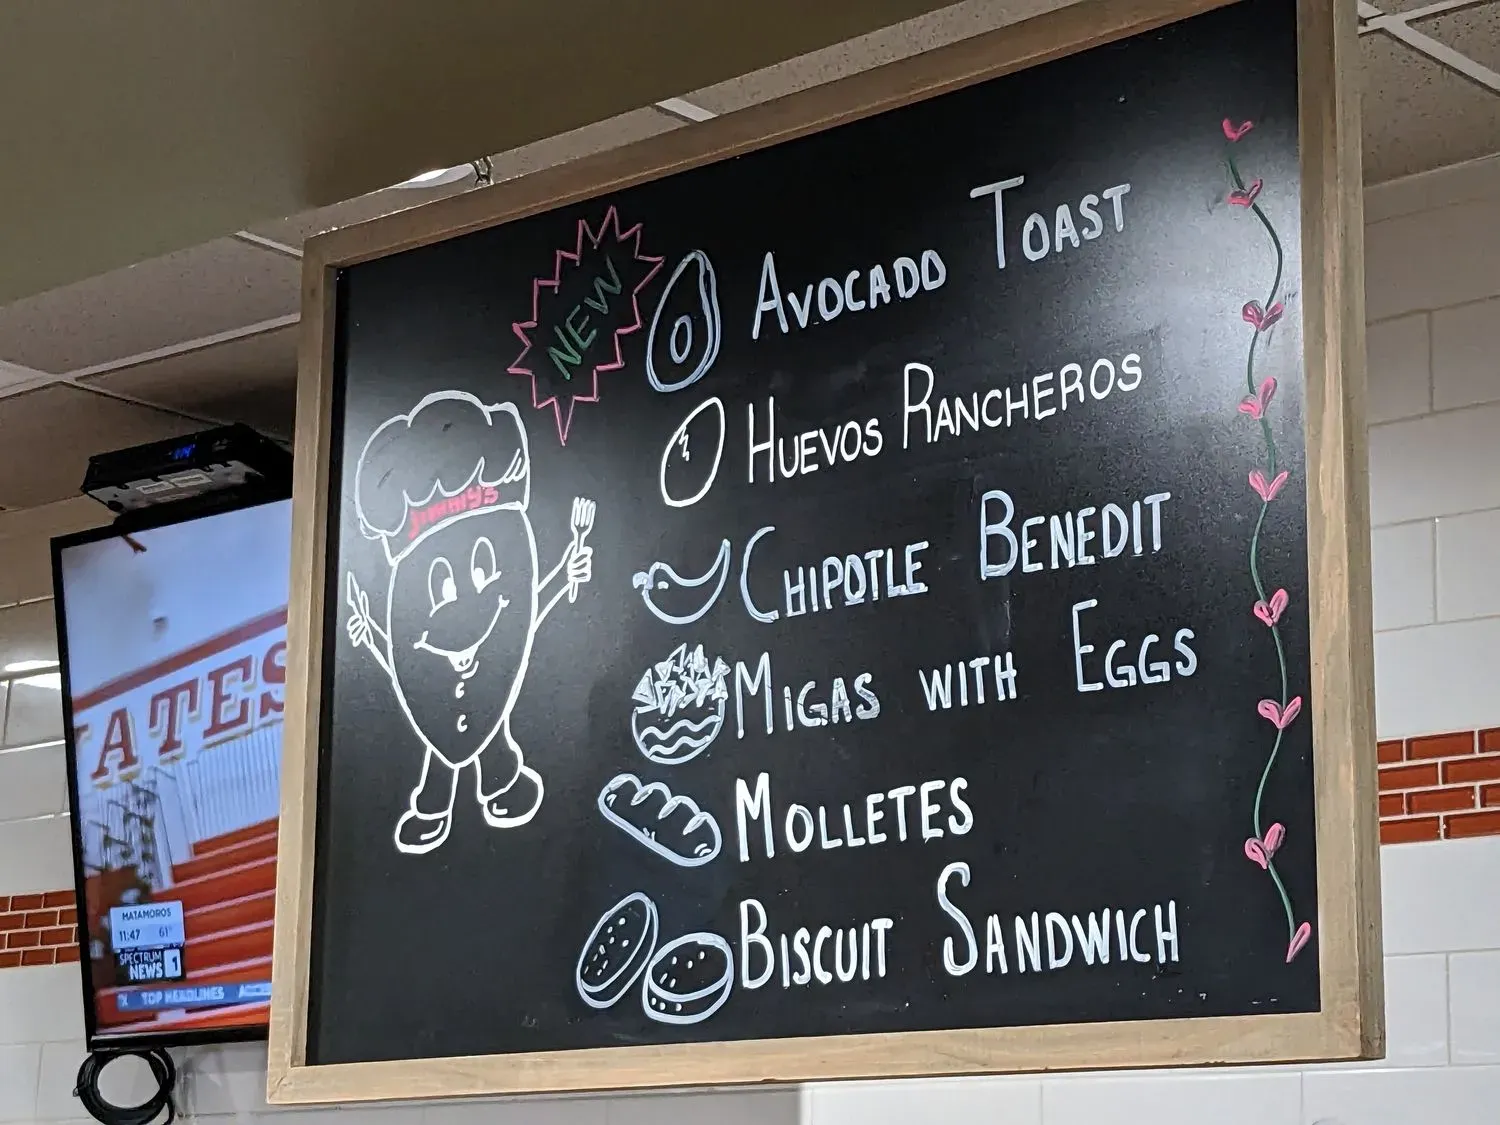 NEW
AVOCADO TOAST
HUEVOS RANCHEROS
CHIPOTLE BENEDIT
MIGAS WITH EGGS
MOLLETES
BISCUIT SANDWICH
Jimmy's
ATES
MATAMOROS
11:47 61°
SPECTRUM
NEWS 1
TOP HEADLINES